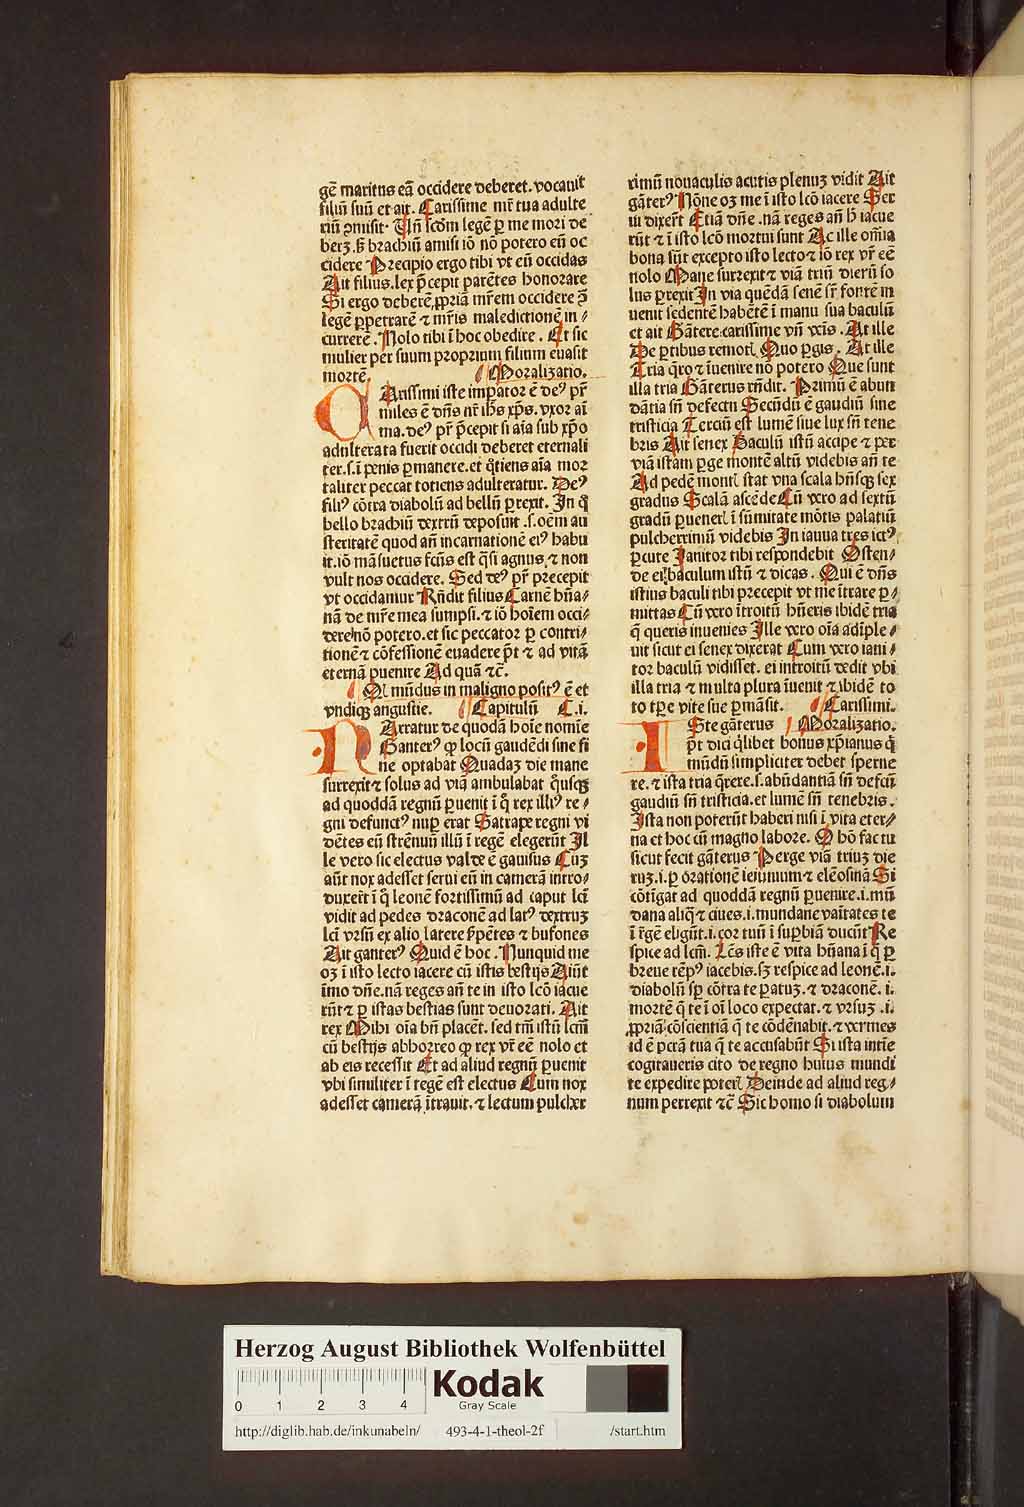 gē maritus eā occidere deberet. vocauit
filiū suū et ait. Carissime mr̄ tua adulte
riū ꝯmisit. Vn̄ scḋm legē ꝑ me mori de
berꝫ. s̄ brachiū amisi iō nō potero eū oc
cidere Precipio ergo tibi vt eū occidas
Ait filius. lex p̄cepit parētes honorare
Si ergo deberē ꝓpriā mr̄em occidere ꝯ̄
legē ꝑpetrarē ⁊ mr̄is maledictionē in⸗
currerē. Nolo tibi ī hoc obedire. Et sic
mulier per suum proprium filium euasit
mortē Moralizatio.
CArissimi iste impator ē deꝰ pr̄
miles ē dn̄s nr̄ ihs̄ xp̄s. vxor aī
ma. deꝰ pr̄ p̄cepit si aīa sub xp̄o
adulterata fuerit occidi deberet eternali
ter. s. ī penis ꝑmanere. et q̄tiens aīa mor
taliter peccat totiens adulteratur. Deꝰ
filiꝰ cōtra diabolū ad bellū ꝑrexit. In q̄
bello brachiū dextrū deposuit .s. oēm au
steritatē quod an̄ incarnationē eiꝰ habu
it. iō māsuetus fcūs est q̄si agnus ⁊ non
vult nos occidere. Sed deꝰ pr̄ precepit
vt occidamur Rn̄dit filius Carnē hūa⸗
nā de mr̄e mea sumpsi. ⁊ iō hoīem occi⸗
dere nō potero. et sic peccator ꝑ contri⸗
tionē ⁊ cōfessionē euadere p̄t ⁊ ad vitā
eternā puenire Ad quā ⁊c̄.
Ql mūdus in maligno positꝰ ē et
vndiqꝫ angustie. Capitulū C.i.
NArratur de quodā hoīe nomīe
Ganterꝰ ꝙ locū gaudēdi sine fi
ne optabat Quadaꝫ die mane
surrexit ⁊ solus ad viā ambulabat q̄usqꝫ
ad quoddā regnū ꝑuenit ī q̄ rex illiꝰ re⸗
gni defunctꝰ nuꝑ erat Satrape regni vi
dētes eū strēnuū illū ī regē elegerūt Il
le vero sic electus valde ē gauisus Cuꝫ
aūt nox adesset serui eū in camerā intro⸗
duxerīt ī q̄ leonē fortissimū ad caput lcī
vidit ad pedes draconē ad latꝰ dextruꝫ
lcī vrsū ex alio latere ẜpētes ⁊ bufones
Ait ganterꝰ Quid ē hoc. Nunquid me
oꝫ ī isto lecto iacere cū istis bestijs Aiūt
īmo dn̄e. nā reges an̄ te in isto lcō iacue
rūt ⁊ ꝑ istas bestias sunt deuorati. Ait
rex Mihi oīa bn̄ placēt. sed tm̄ istū lcm̄
cū bestijs abhorreo ꝙ rex vr̄ eē nolo et
ab eis recessit Et ad aliud regnū ꝑuenit
vbi similiter ī regē est electus Cum nox
adesset camerā ītrauit. ⁊ lectum pulcher
rimū nouaculis acutis plenuꝫ vidit Ait
gāterꝰ Nōne oꝫ me ī isto lcō iacere Ser
ui dixerūt Etiā dn̄e. nā reges an̄ h̄ iacue
rūt ⁊ ī isto lcō mortui sunt Ac ille om̄ia
bona sūt excepto isto lecto ⁊ iō rex vr̄ eē
nolo Mane surrexit ⁊ viā triū dierū so
lus ꝑrexit In via quēdā senē sr̄ fontē in
uenit sedentē habētē ī manu sua baculū
et ait Gātere carissime vn̄ vēis. At ille
De ꝑtibus remotꝭ Quo ꝑgis. At ille
Tria q̄ro ⁊ īuenire nō potero Que sunt
illa tria Gāterus rn̄dit. Primū ē abun
dātia sn̄ defectu Secūdū ē gaudiū sine
tristicia Terciū est lumē siue lux sn̄ tene
bris Ait senex Baculū istū accipe ⁊ per
viā istam ꝑge montē altū videbis an̄ te
Ad pedē montꝭ stat vna scala hn̄sqꝫ sex
gradus Scalā ascēde Cū vero ad sextū
gradū ꝑuenerꝭ ī sūmitate mōtis palatiū
pulcherrimū videbis In ianua tres ictꝰ
ꝑcute Ianitor tibi respondebit Osten⸗
de ei baculum istū ⁊ dicas. Qui ē dn̄s
istius baculi tibi precepit vt me ītrare ꝑ⸗
mittas Cū vero ītroitū hūeris ibidē tria
q̄ queris inuenies Ille vero oīa adīple⸗
uit sicut ei senex dixerat Cum vero iani⸗
tor baculū vidisset. ei introitū dedit vbi
illa tria ⁊ multa plura īuenit ⁊ ibidē to
to tp̄e vite sue ꝑmāsit. Carissimi.
ISte gāterus Moralizatio.
p̄t dici q̄libet bonus xp̄ianus q̄
mūdū simpliciter debet sperne
re. ⁊ ista tria q̄rere. s. abūdantiā sn̄ defcū
gaudiū sn̄ tristicia. et lumē sn̄ tenebris.
Ista non poterūt haberi nisi ī vita eter⸗
na et hoc cū magno labore. O hō fac tu
sicut fecit gāterus Perge viā triuꝫ die
ruꝫ .i. ꝑ orationē ieiunium ⁊ elēosinā Si
cōtīgat ad quoddā regnū ꝑuenire .i. mū
dana aliq̄ ⁊ ciues .i. mundane vanitates te
ī rēgē eligūt .i. cor tuū ī suꝑbiā ducūt Re
spice ad lcm̄. Lcūs iste ē vita hūana ī q̄ ꝑ
breue tēpꝰ iacebis. sꝫ respice ad leonē .i.
diabolū sꝑ cōtra te ꝑatuꝫ. ⁊ draconē .i.
mortē q̄ te ī oī loco expectat. ⁊ vrsuꝫ .i.
ꝓpriā cōscientiā q̄ te cōdēnabit. ⁊ vermes
id ē pctā tua q̄ te accusabūt Si ista intīe
cogitaueris cito de regno huius mundi
te expedire poterꝭ Deinde ad aliud reg⸗
num perrexit ⁊c̄ Sic homo si diabolum
Herzog August Bibliothek Wolfenbüttel
0 1 2 3 4
Kodak
Gray Scale
http://diglib.hab.de/inkunabeln/ 493-4-1-theol-2f /start.htm